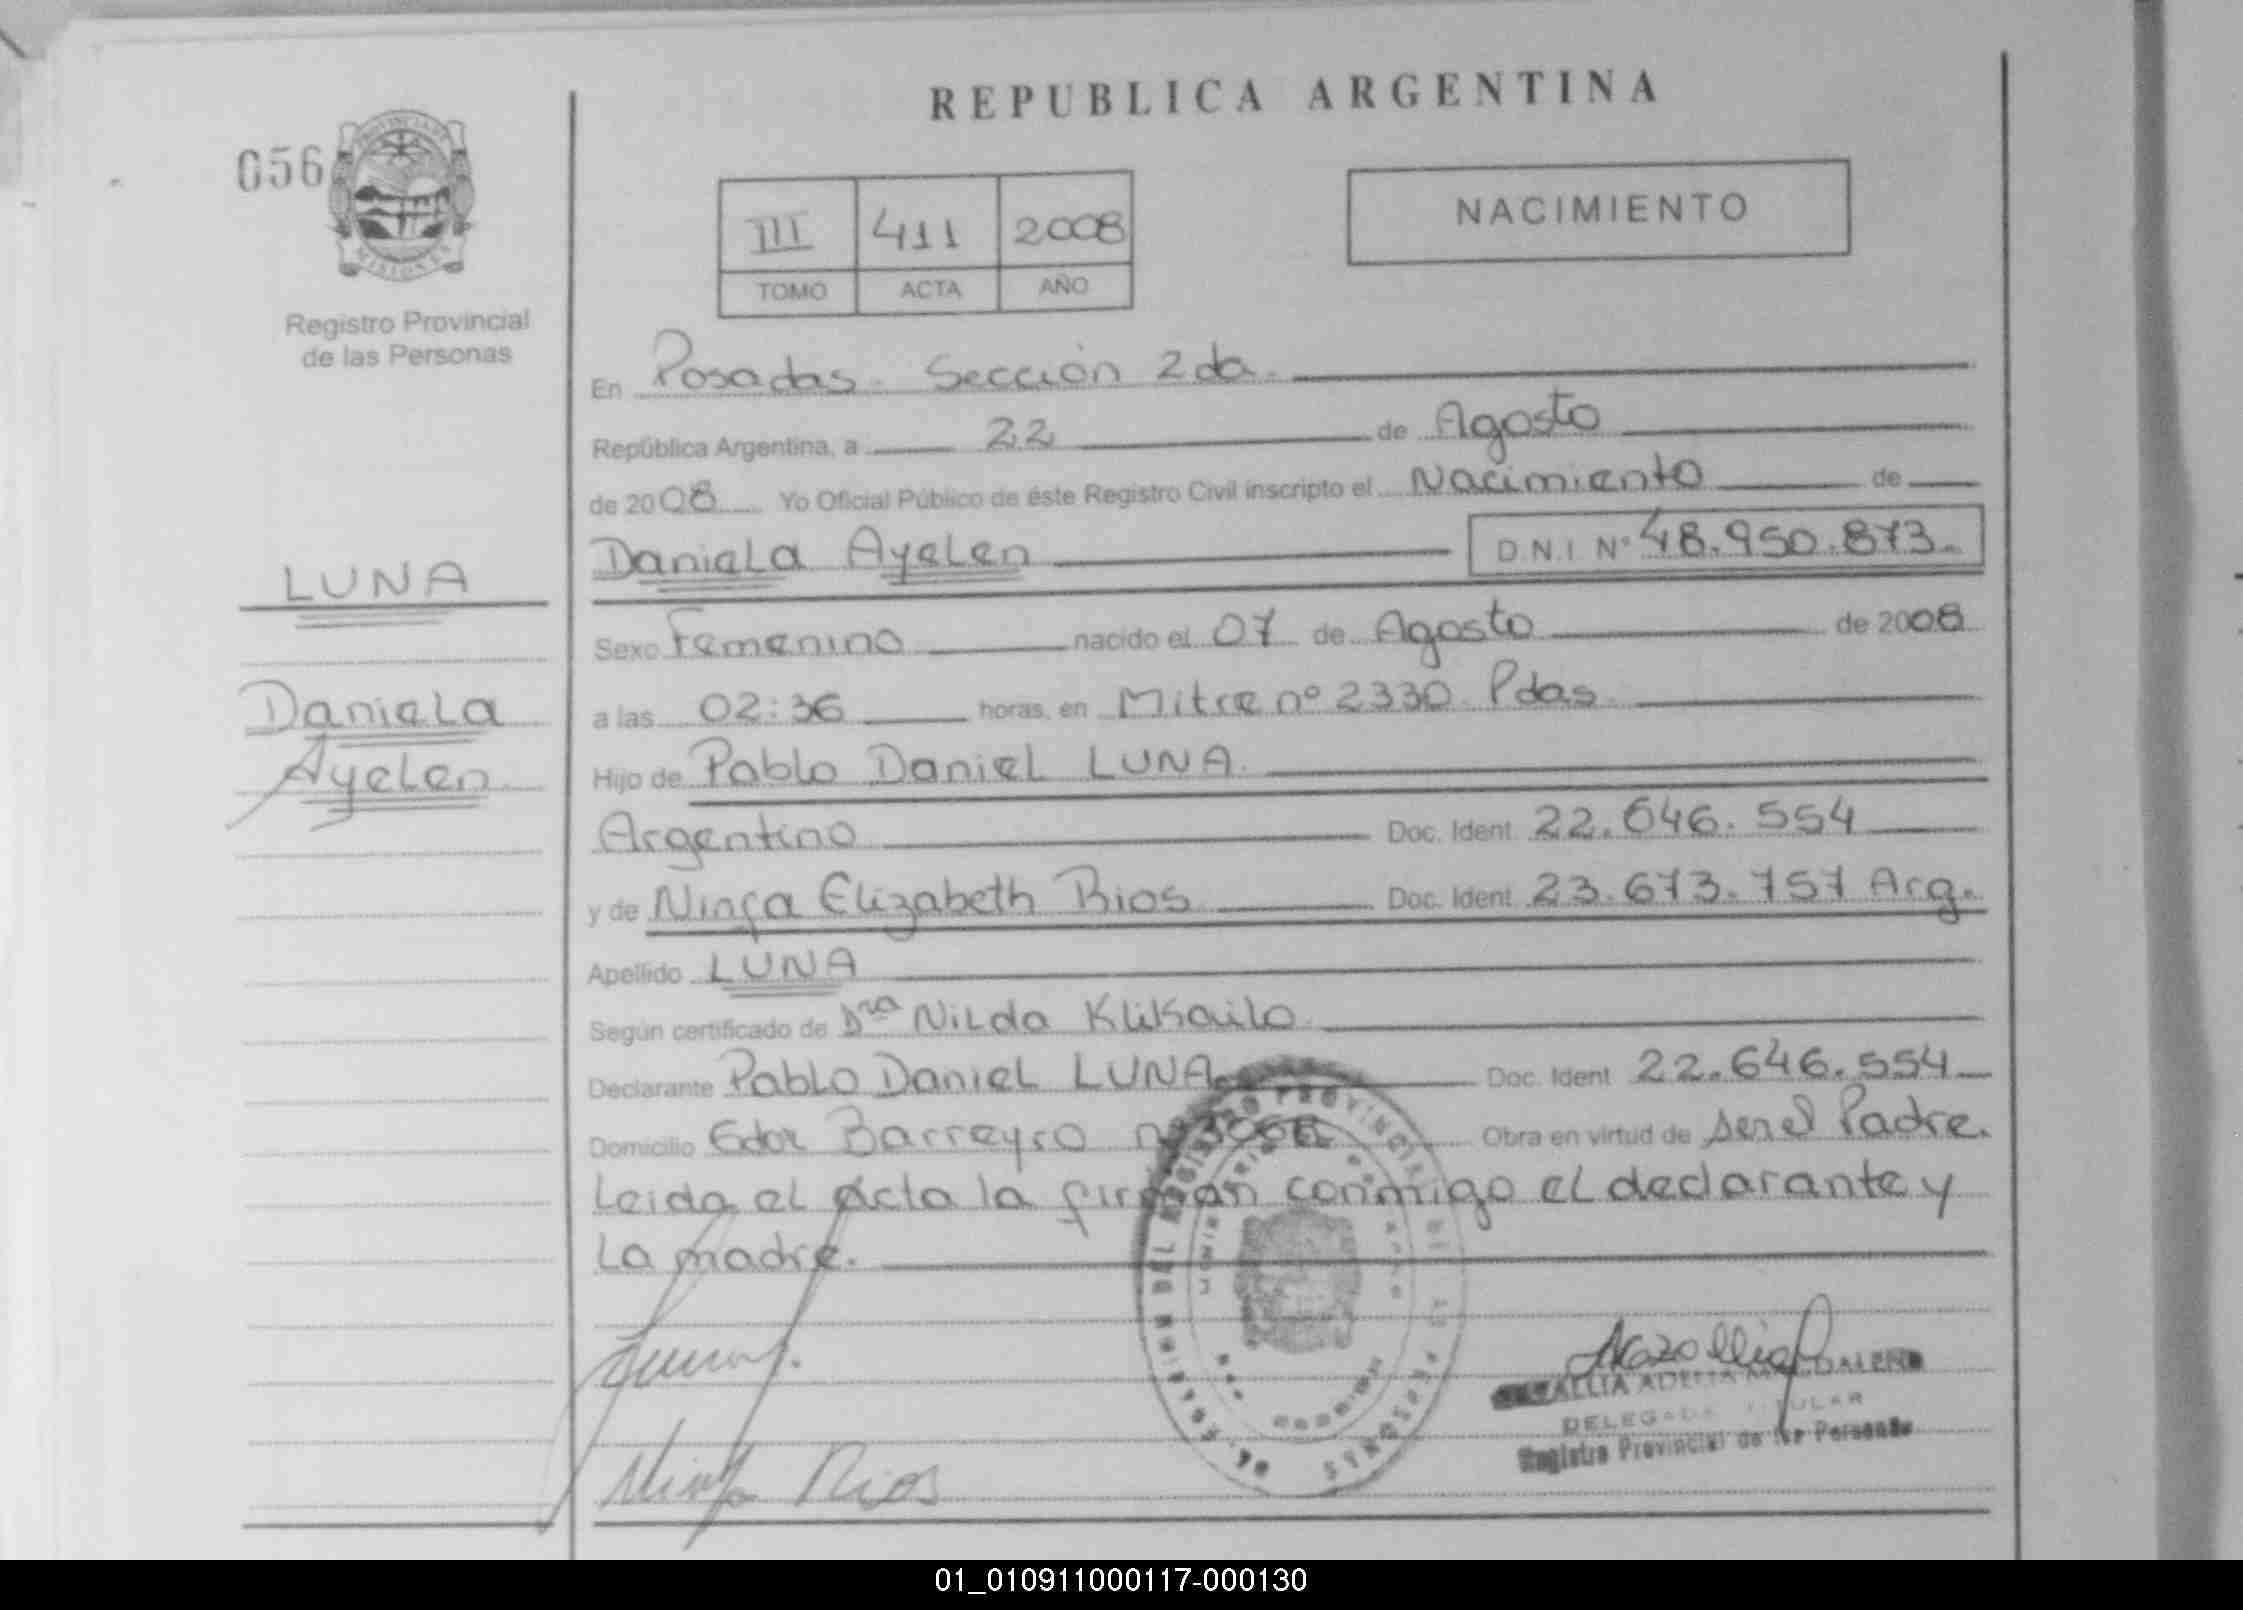 REPUBLICA ARGENTINA
056
PROVINCIA DE
MISIONES
Registro Provincial
de las Personas
III 411 2008
TOMO ACTA AÑO
NACIMIENTO
LUNA
Daniela
Ayelen
En Posadas. Sección 2da.
República Argentina, a 22 de Agosto
de 2008 Yo Oficial Público de éste Registro Civil inscripto el Nacimiento de
Daniela Ayelen D.N.I. Nº 48.950.873.
Sexo Femenino nacido el 07 de Agosto de 2008
a las 02:36 horas, en Mitre nº 2330. Pdas.
Hijo de Pablo Daniel LUNA.
Argentino Doc. Ident. 22.646.554
y de Ninfa Elizabeth Rios Doc. Ident. 23.673.757 Arg.
Apellido LUNA
Según certificado de Dra Nilda Klikailo
Declarante Pablo Daniel LUNA. Doc. Ident 22.646.554
Domicilio Gdor Barreyro nº Obra en virtud de ser el Padre.
Leida el acta la firman conmigo el declarante y
la madre.
Ninfa Rios
ADELIA MAGDALENA
DELEGADA TITULAR
Registro Provincial de las Personas
01_010911000117-000130